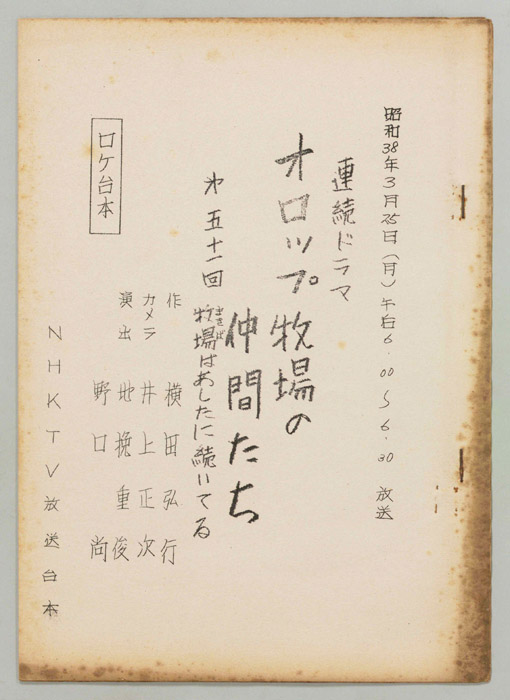 昭和38年3月25日(月)午后6.00〜6.30 放送
連続ドラマ
オロップ牧場の
仲間たち
第五十一回
牧場はあしたに続いてる
まきば
作 横田弘行
カメラ 井上正次
演出 地挽重俊
野口 尚
ロケ台本
NHKTV放送台本